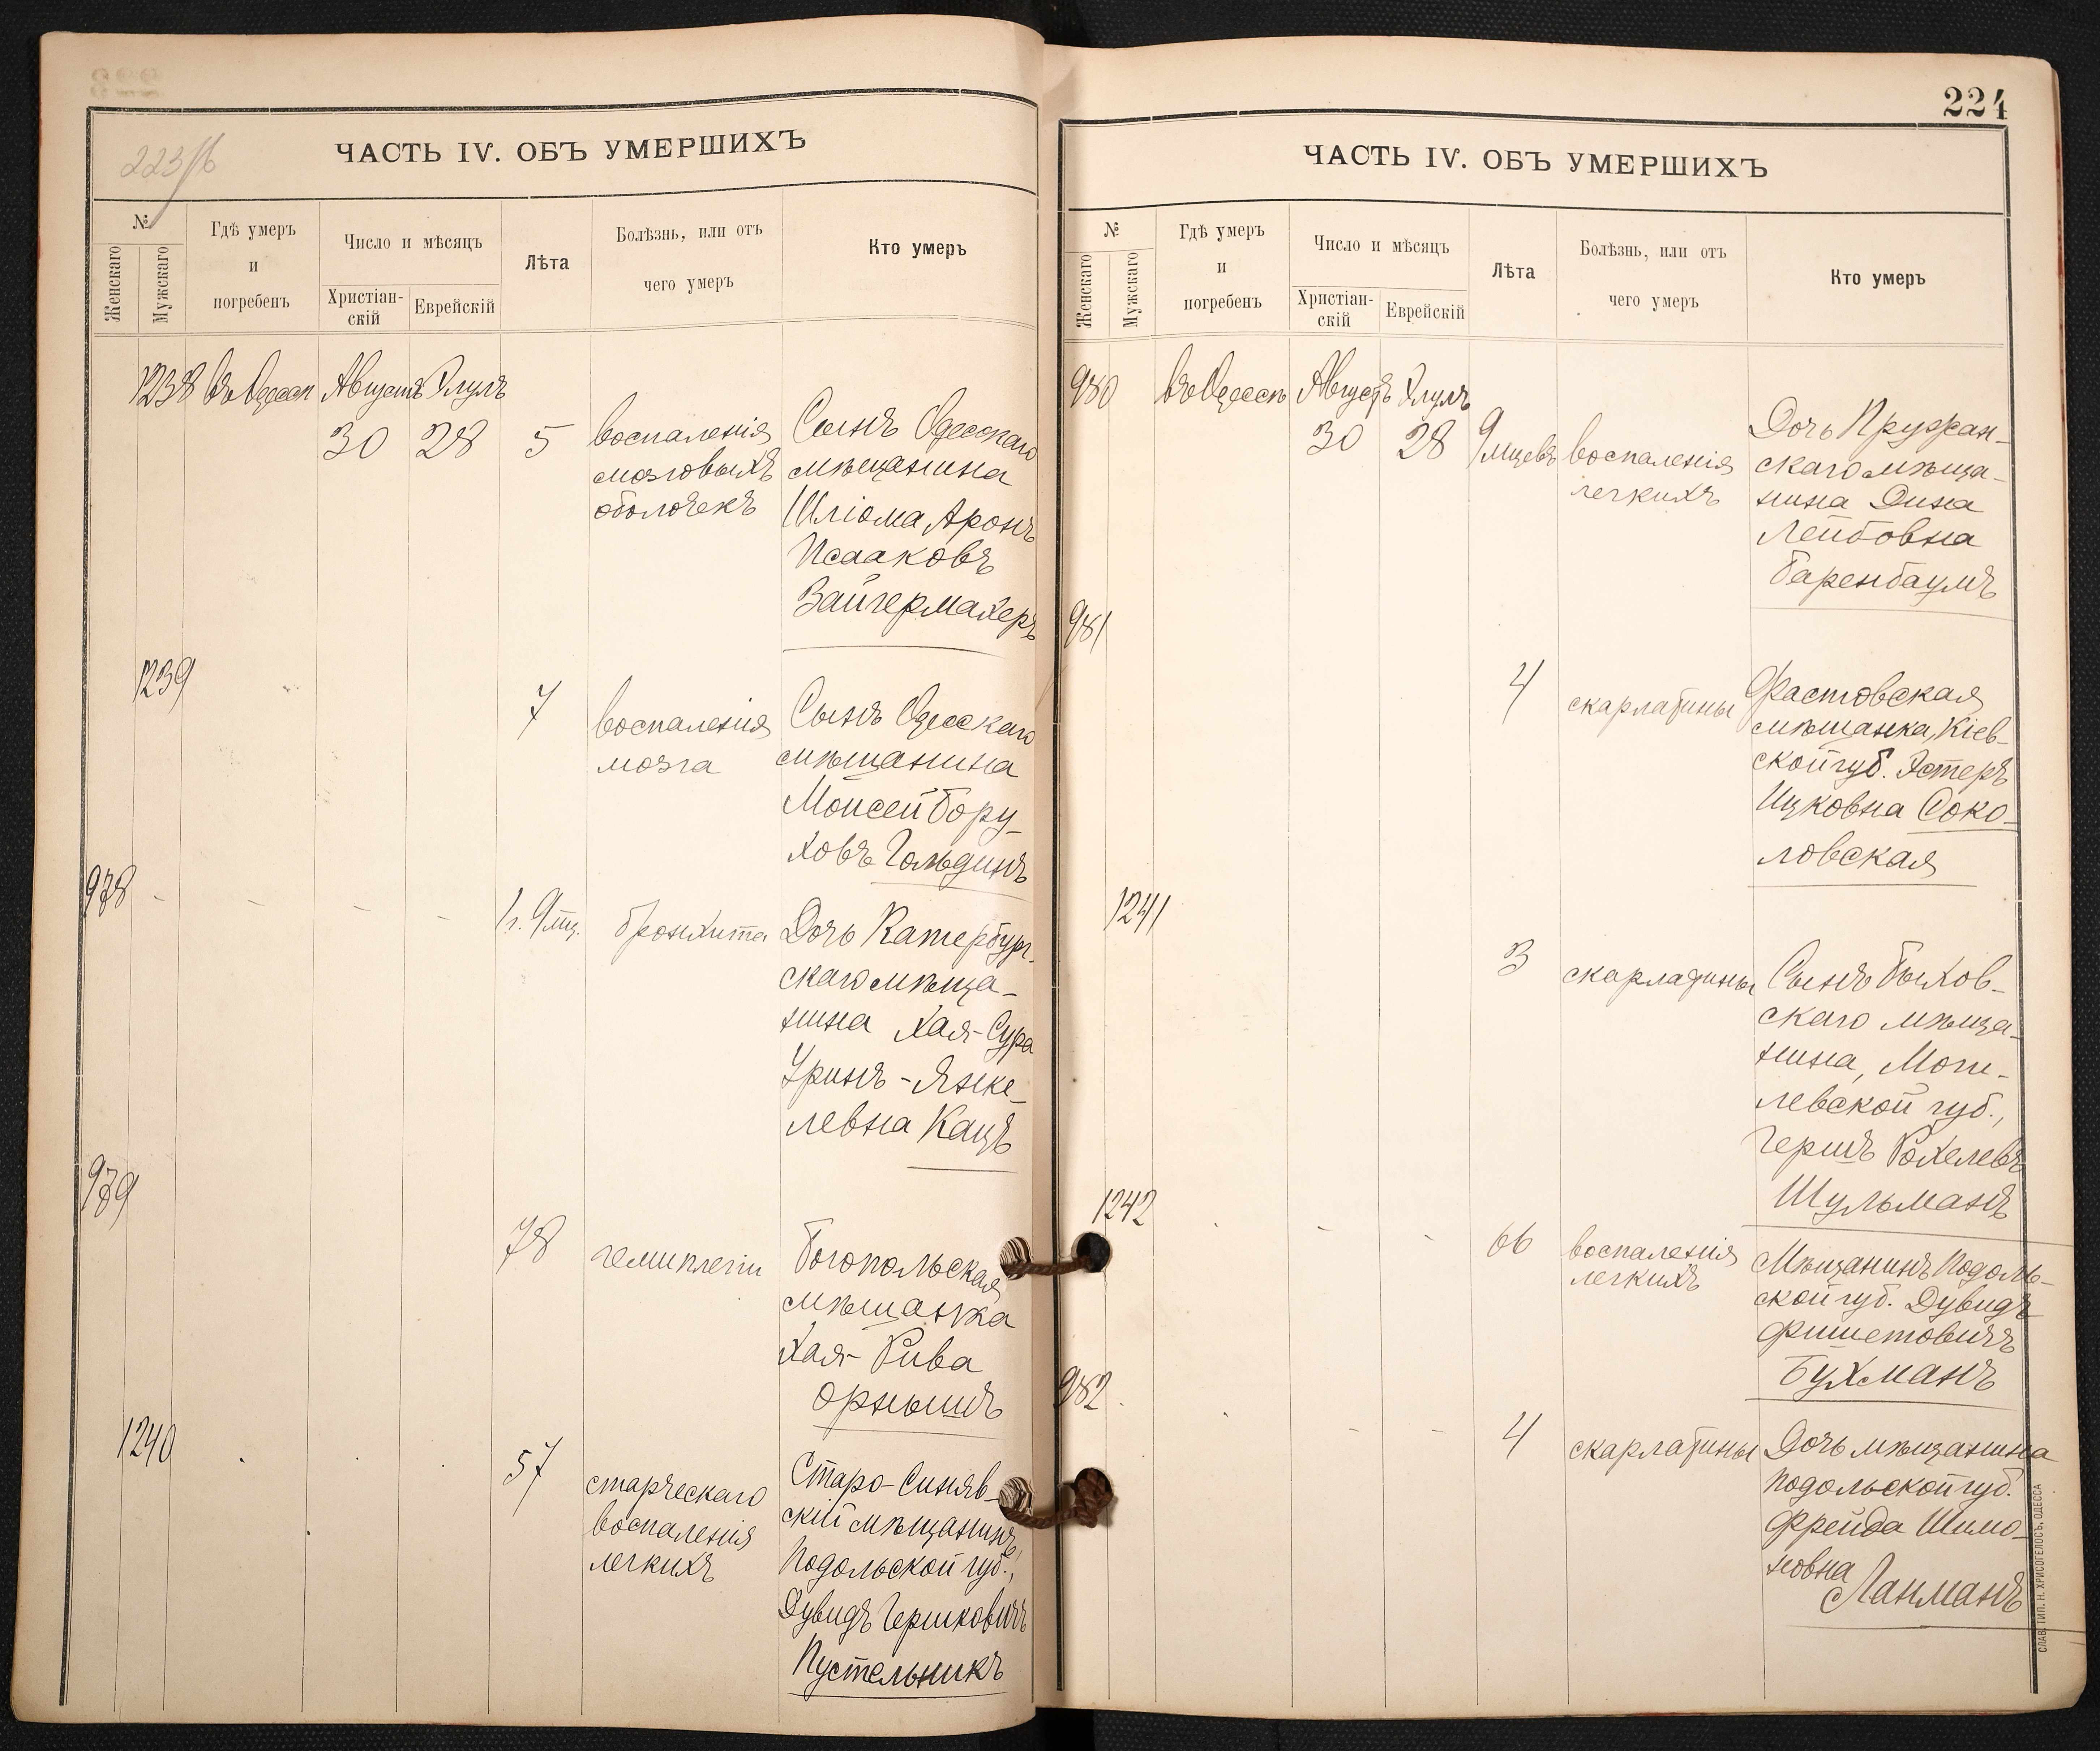 223/б
ЧАСТЬ IV. ОБЪ УМЕРШИХЪ
№
Женскаго
Мужскаго
Гдѣ умеръ
и
погребенъ
Число и мѣсяцъ
Христіан-
скій
Еврейскій
Лѣта
Болѣзнь, или отъ
чего умеръ
Кто умеръ
1238 въ Одессѣ Августъ Элулъ
30 28 5
воспаленія
мозговыхъ
оболочекъ
Сынъ Одесскаго
мѣщанина
Шліома Аронъ
Исааковъ
Зайгермахеръ
1239
7
воспаленія
мозга
Сынъ Одесскаго
мѣщанина
Моисей Бору-
ховъ Гольдинъ
978 - - - -
1 г. 9 мц.
бронхита
Дочь Катербург-
скаго мѣща-
нина Хая-Сура
Уринъ-Янке-
левна Кацъ
979
78
гемиплегіи
Богопольская
мѣщанка
Хая-Рива
Орнышъ
1240
57
старческаго
воспаленія
легкихъ
Старо-Синяв-
скій мѣщанинъ,
Подольской губ.,
Дувидъ Гершковичъ
Пустельникъ
224
ЧАСТЬ IV. ОБЪ УМЕРШИХЪ
№
Женскаго
Мужскаго
Гдѣ умеръ
и
погребенъ
Число и мѣсяцъ
Христіан-
скій
Еврейскій
Лѣта
Болѣзнь, или отъ
чего умеръ
Кто умеръ
980 въ Одессѣ Августъ Элулъ
30 28 9 мцевъ
воспаленія
легкихъ
Дочь Пружан-
скаго мѣща-
нина Дина
Лейбовна
Баренбаумъ
981
4
скарлатины
Фастовская
мѣщанка, Кіев-
ской губ. Эстеръ
Ицковна Соко-
ловская
1241
3
скарлатины
Сынъ Быхов-
скаго мѣща-
нина, Моги-
левской губ.,
Гершъ Рохелевъ
Шульманъ
1242
66
воспаленія
легкихъ
Мѣщанинъ Подоль-
ской губ. Дувидъ
Фишетовичъ
Бухманъ
982
4
скарлатины
Дочь мѣщанина
Подольской губ.
Фрейда Шимо-
новна
Ланманъ
СЛАВ. ТИП. Н. ХРИСОГЕЛОСЪ, ОДЕССА